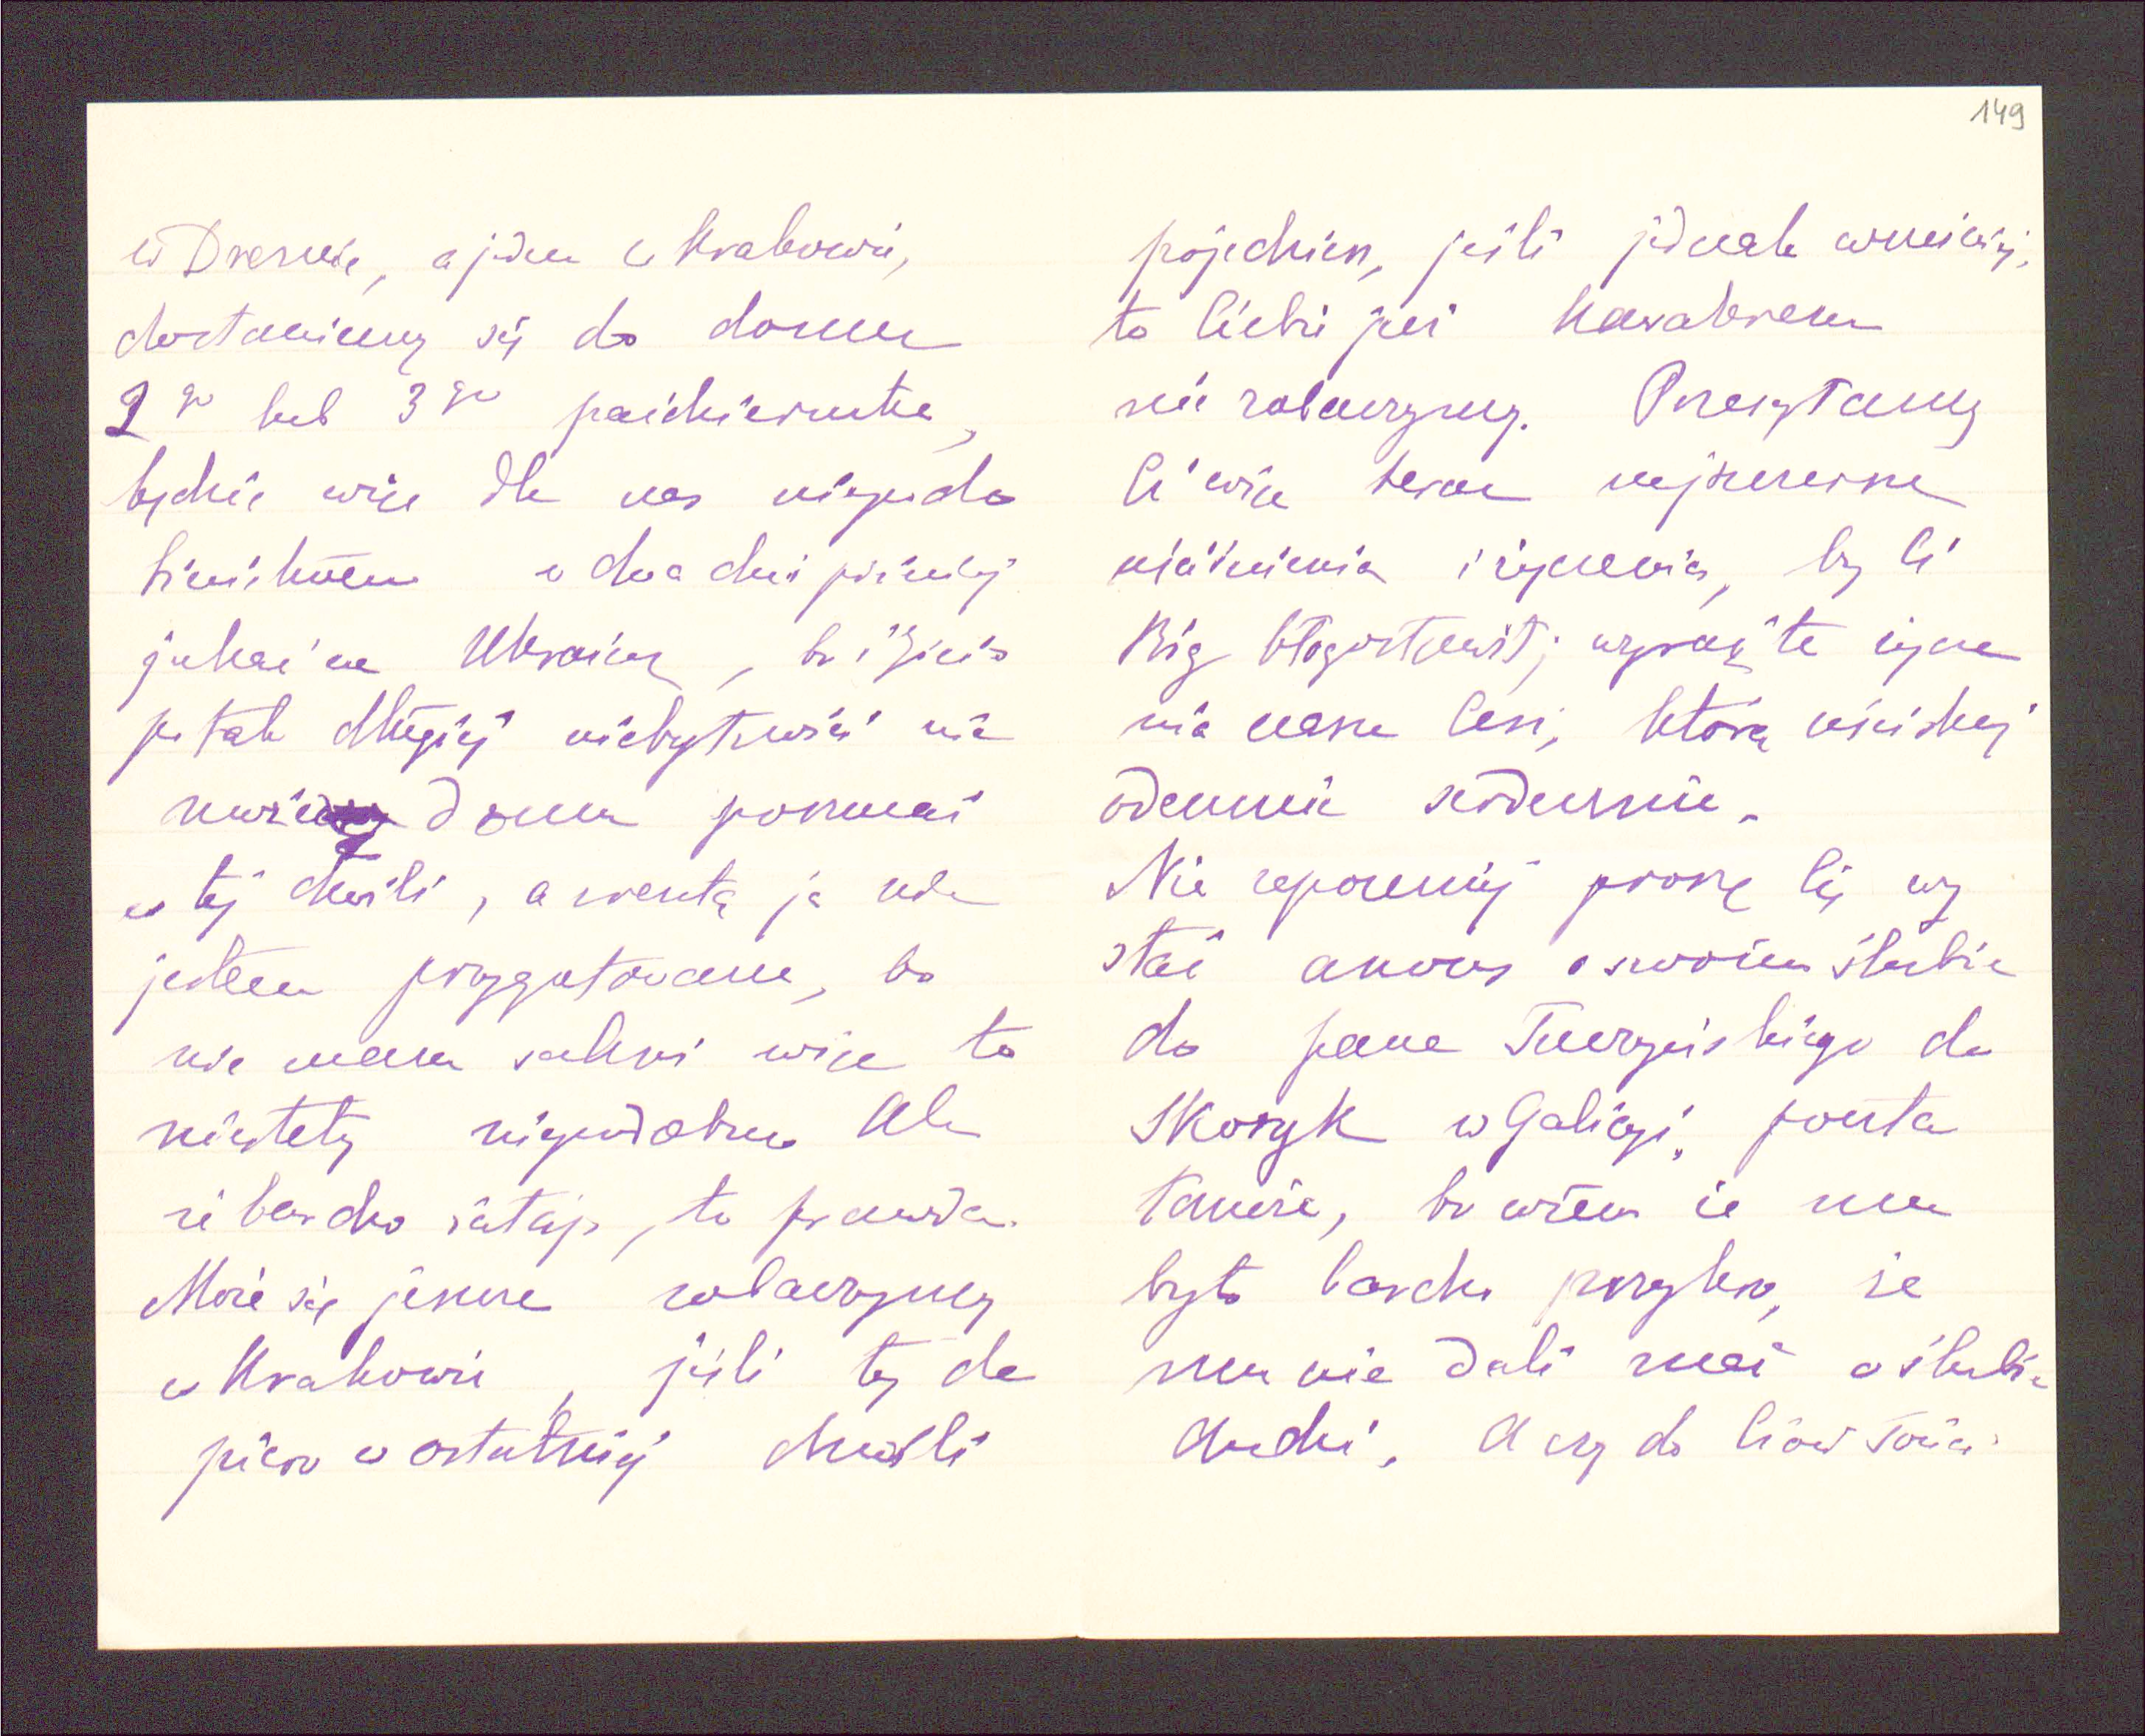 149
w Dreznie, a jeden w Krakowie,
dostaniemy się do domu
2go lub 3go października,
będzie więc dla nas niepodo
bieństwem w dwa dni później
jechać na Ukrainę, bo i Zizio
po tak długiej niebytności nie
może domu porzucać
w tej chwili, a zresztą ja nie
jestem przygotowana, bo
nie mam sukni więc to
niestety niepodobna Ale
że bardzo żałuję, to prawda.
Może się jeszcze zobaczymy
w Krakowie, jeśli ty do
piero w ostatniej chwili
pojedziesz, jeśli jednak wcześniej,
to Ciebie już Kawalerem
nie zobaczymy. Przesyłamy
Ci więc teraz najszczersze
uściśnienia i życzenia, by Ci
Bóg błogosławił; wyraź te życze
nia nasze Cesi, którą uściskaj
odemnie serdecznie.
Nie zapomnij proszę Cię wy
słać anons o swoim ślubie
do pana Turczyńskiego do
Skoryk w Galicyi, poczta
tamże, bo wiem że mu
było bardzo przykro, że
mu nie dali znać o ślubie
Andzi. A czy do Ciow Tosia